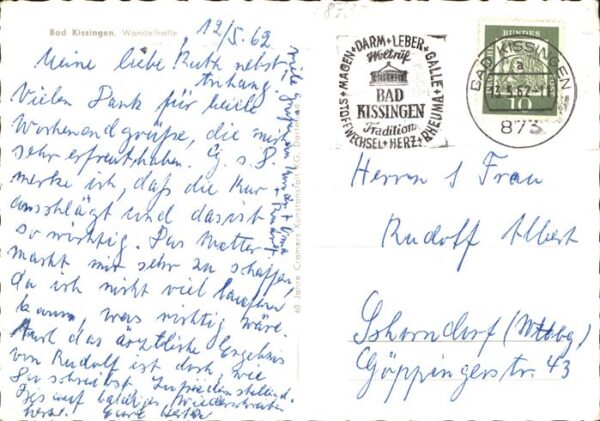 Bad Kissingen, Wandelhalle
12/5. 62
Meine liebe Ruth nebst
Anhang.
Vielen Dank für beide
Wochenendgrüße, die mich
sehr erfreut haben. G. s. D.
merke ich, daß die Kur
anschlägt und das ist
so wichtig. Das Wetter
macht mir sehr zu schaffen,
da ich nicht viel laufen
kann, was wichtig wäre.
Auch das ärztliche Ergebnis
von Rudolf ist doch, wie
Du schreibst, zufriedenstellend.
Bis auf baldiges Wiedersehen
herzl. Eure
viele Grüße an Kinder +
60 Jahre Cramers Kunstanstalt KG, Dortmund
MAGEN + DARM + LEBER + GALLE + RHEUMA + HERZ + STOFFWECHSEL
Weltruf
BAD
KISSINGEN
Tradition
BAD KISSINGEN
a
873
BUNDES
10
Herrn & Frau
Rudolf Albert
Schorndorf (Wttbg)
Göppingerstr 43